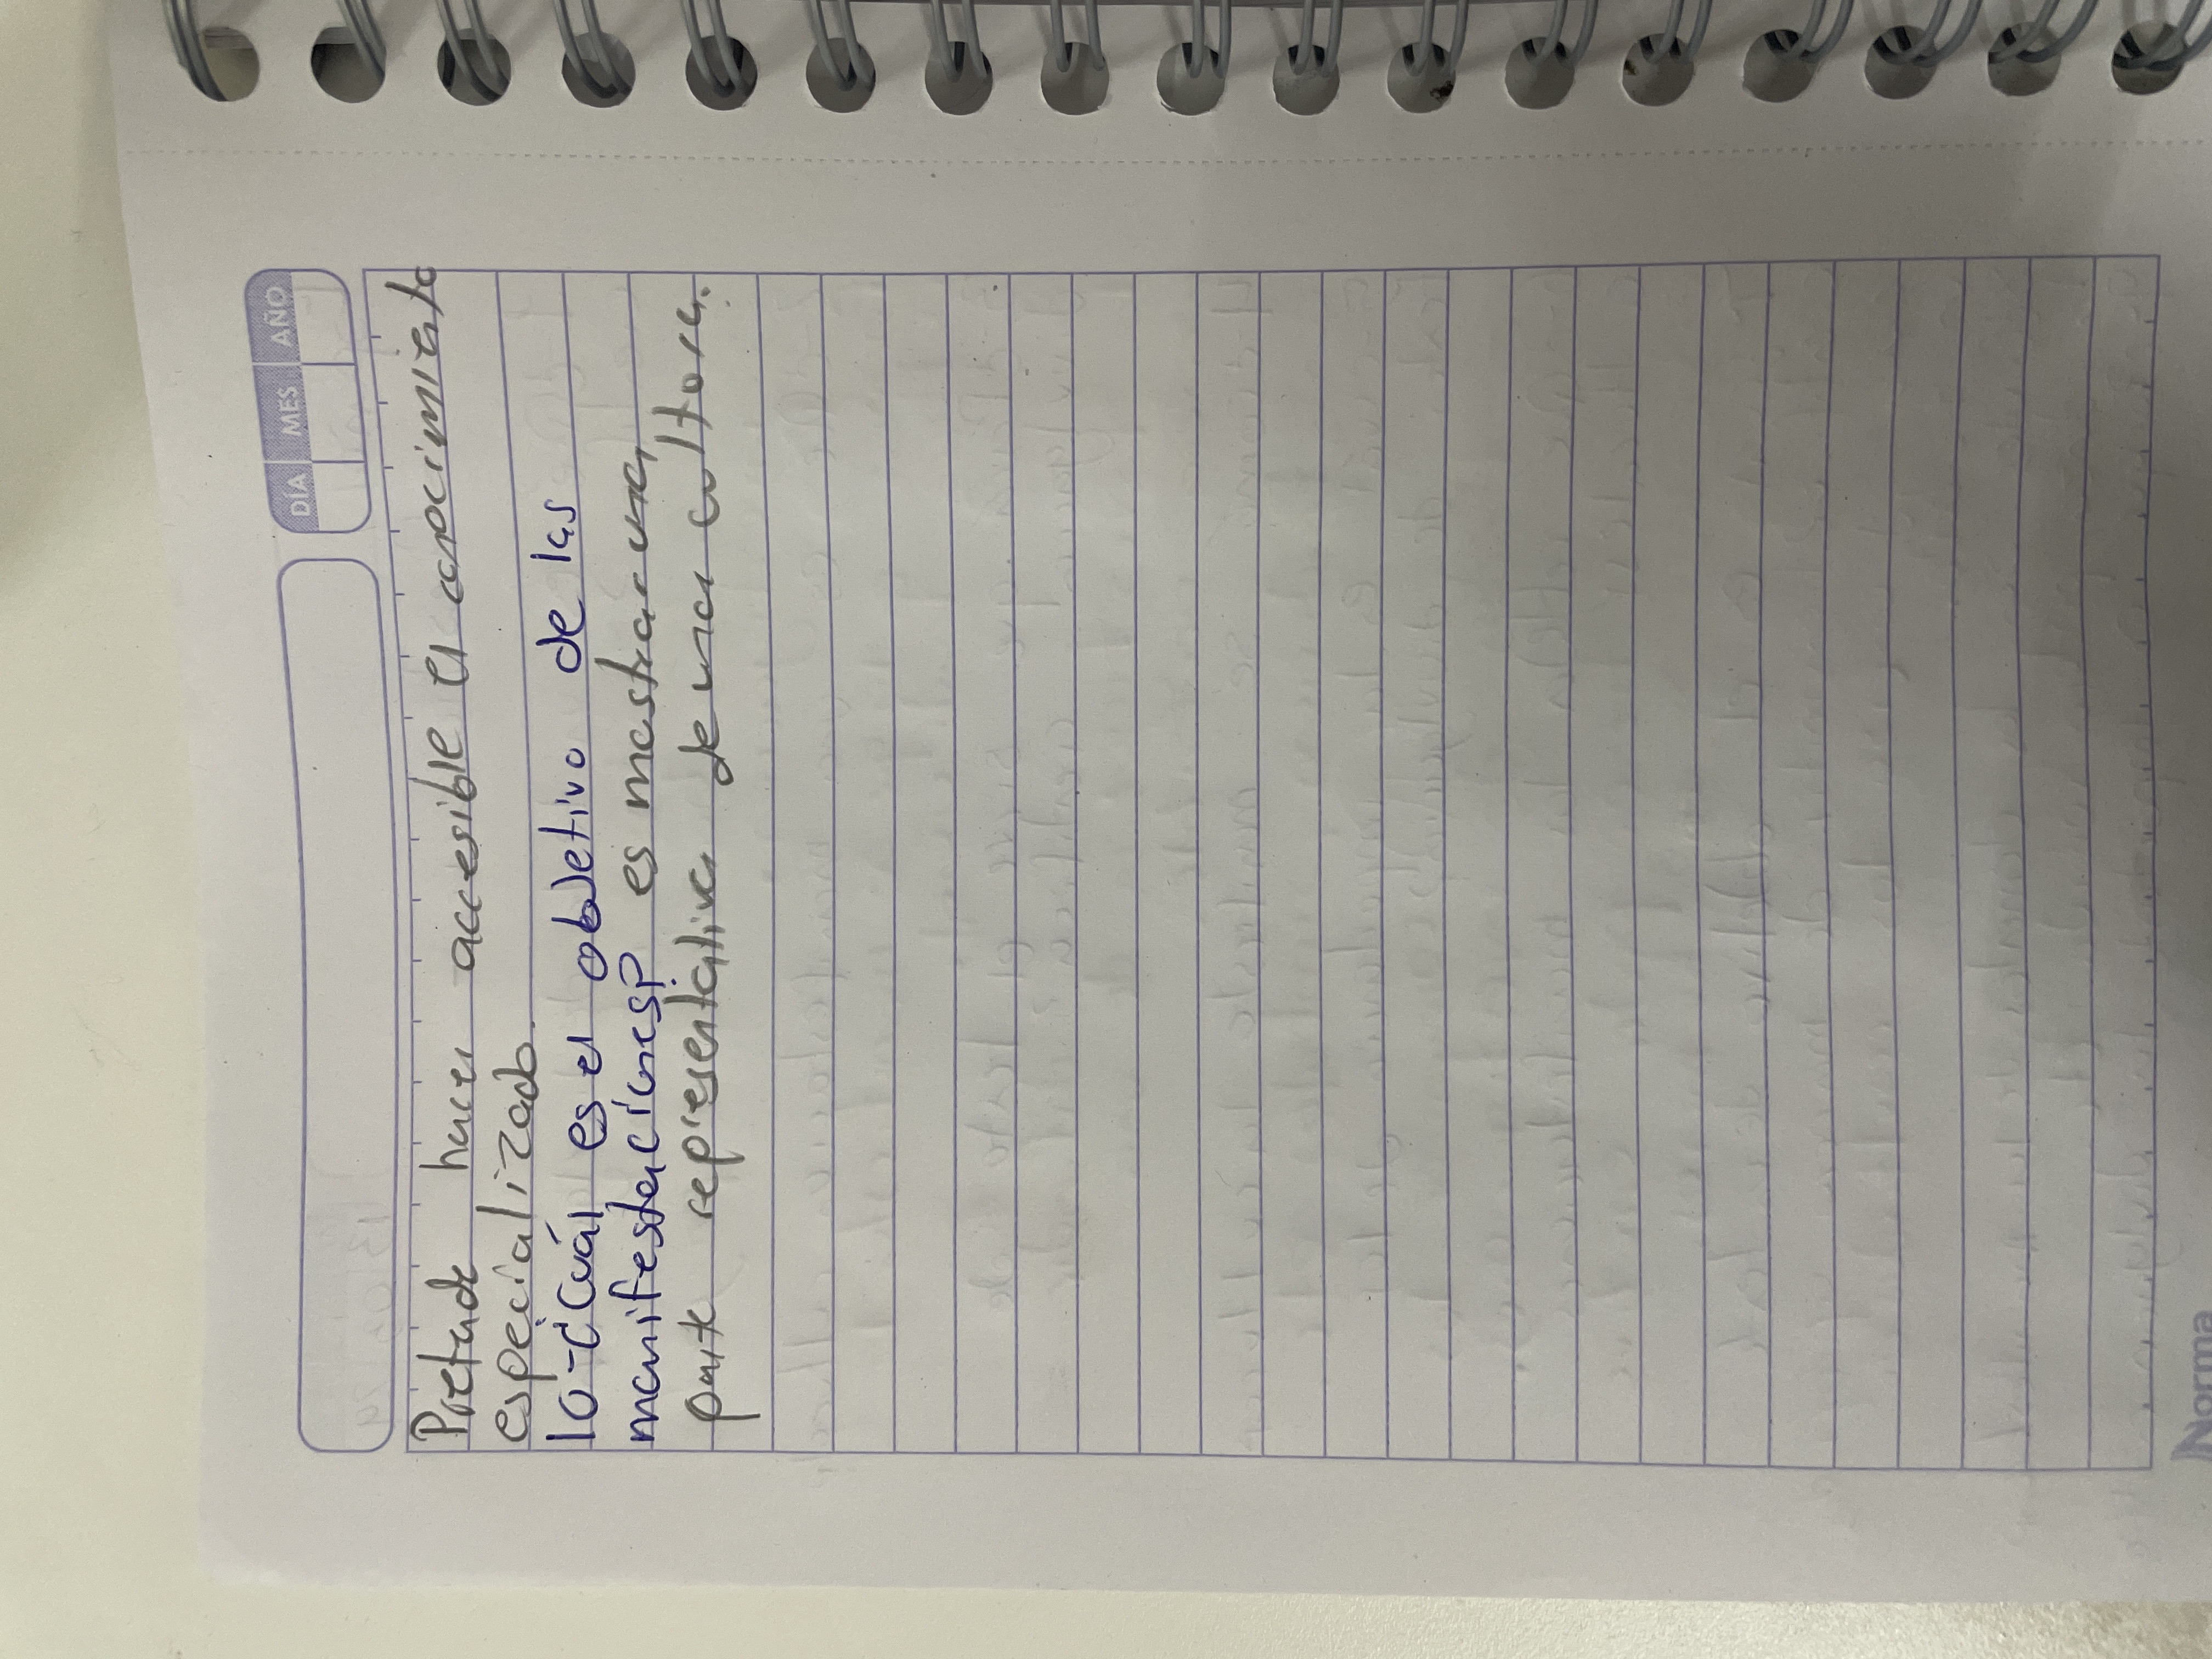 DÍA MES AÑO
Pretende hacer accesible el conocimiento
especializado.
10-¿Cuál es el objetivo de las
manifestaciones? es mostrar una
parte representativa de una cultura.
Norma